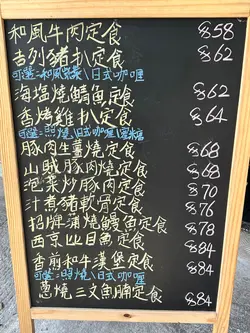 和風牛肉定食 $58
吉列豬扒定食 $62
可選:和風紫菜\日式咖喱
海塩燒鯖魚定食 $62
香烤雞扒定食 $64
可選:照燒\日式咖喱\蜜糖
豚肉生薑燒定食 $68
山賊豚肉燒定食 $68
泡菜炒豚肉定食 $70
汁煮豬軟骨定食 $76
招牌蒲燒鰻魚定食 $78
西京比目魚定食 $84
香煎和牛漢堡定食 $84
可選:照燒\日式咖喱
蔥燒三文魚腩定食 $84